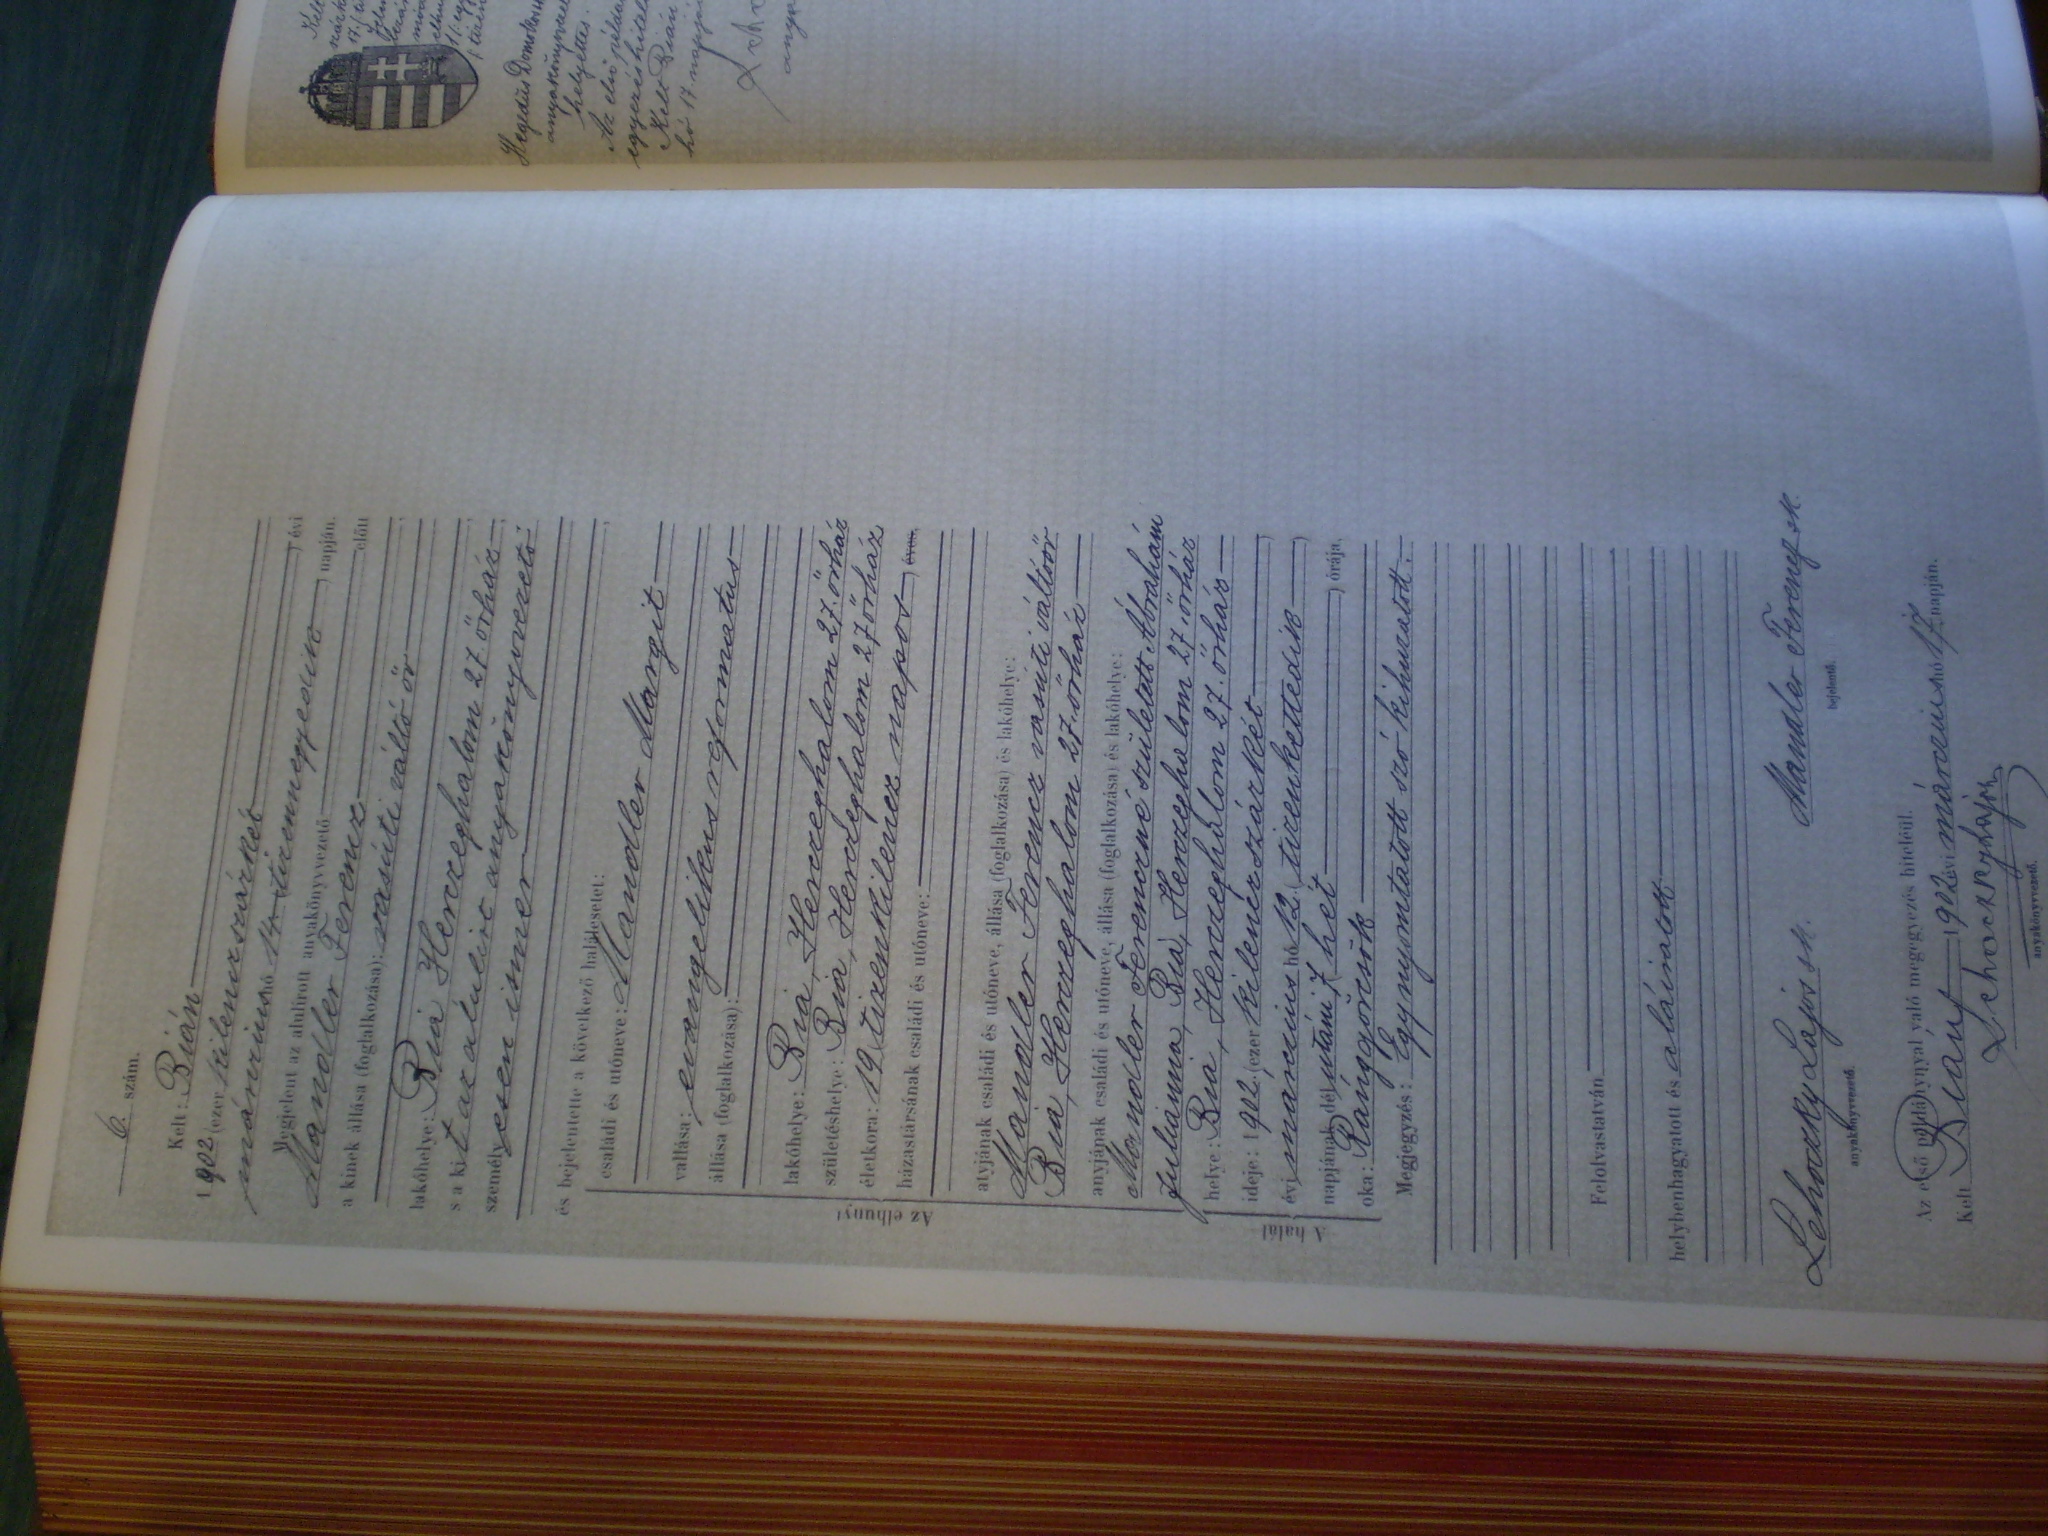 6. szám.
Kelt: Bián
1902 (ezer kilenczszázkét
márczius hó 14. tizennegyedik) évi
Megjelent az alulirott anyakönyvvezető napján. előtt
Mandler Ferencz
a kinek állása (foglalkozása): vasúti váltó őr
lakóhelye: Bia Herczeghalom 27. őrház
s a kit az alulirt anyakönyvvezető
személyesen ismer
és bejelentette a következő halálesetet:
Az elhunyt
családi és utóneve: Mandler Margit
vallása: evangelikus reformatus
állása (foglalkozása):
lakóhelye: Bia, Herczeghalom 27. őrház
születéshelye: Bia, Herczeghalom 27 őrház
életkora: 19 (tizenkilencz napot) éves,
házastársának családi és utóneve:
atyjának családi és utóneve, állása (foglalkozása) és lakóhelye:
Mandler Ferencz vasúti váltóőr
Bia, Herczeghalom 27. őrház
anyjának családi és utóneve, állása (foglalkozása) és lakóhelye:
Mandler Ferenczné született Ábrahám
Julianna, Bia, Herczeghalom 27. őrház
A halál
helye: Bia, Herczeghalom 27. őrház
ideje: 1902. (ezer kilenczszázkét
évi márczius hó 12. (tizenkettedik)
napjának dél utáni 7 (hét) órája,
oka: Rángörcsök
Megjegyzés: Egy nyomtatott szó kihuzatott.
Felolvastatván
helybenhagyatott és aláiratott.
Lehoczky Lajos sk.
anyakönyvvezető.
Mandler Ferencz sk.
bejelentő.
Az első példánynyal való megegyezés hiteléül.
Kelt Bián, 1902 évi márczius hó 17. napján.
Lehoczky Lajos
anyakönyvvezető.
Hegedűs Domokos
helyettes
Az első
Kelt Bián
hó 17